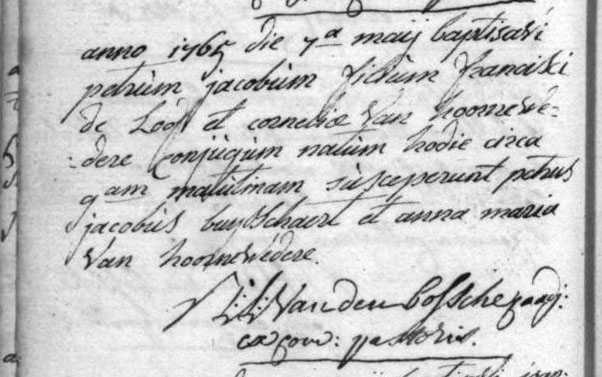 anno 1765 die 7a maij baptisavi
petrum jacobum filium francisci
de Loof et corneliæ Van hoorewe=
=dere conjugum natum hodie circa
9am matutinam susceperunt petrus
jacobus buysschaert et anna maria
Van hoorewedere.
Van den bossche
pastoris.